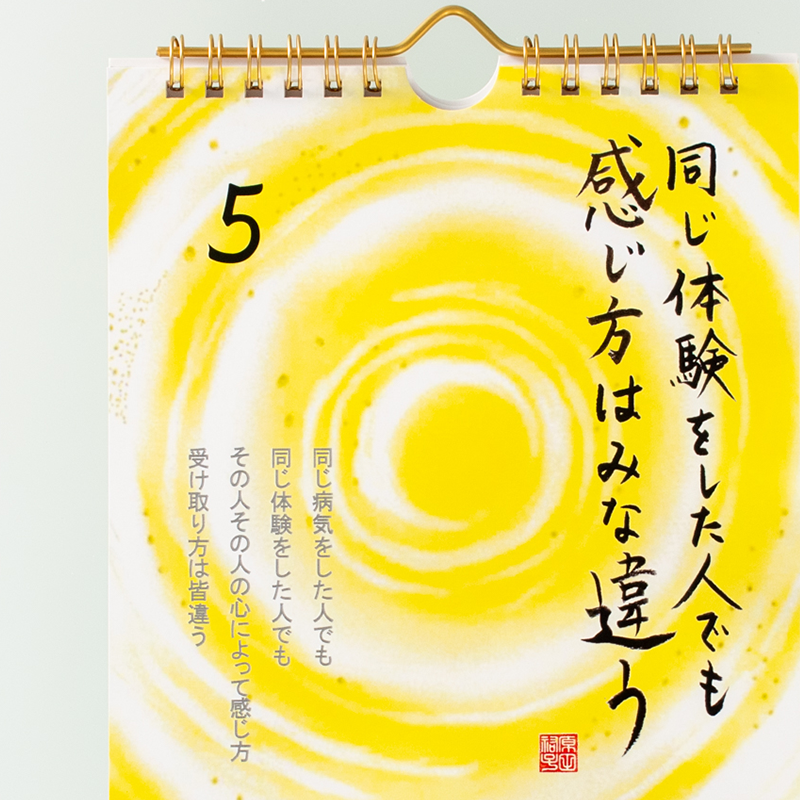 同じ体験をした人でも
感じ方はみな違う
5
同じ病気をした人でも
同じ体験をした人でも
その人その人の心によって感じ方
受け取り方は皆違う